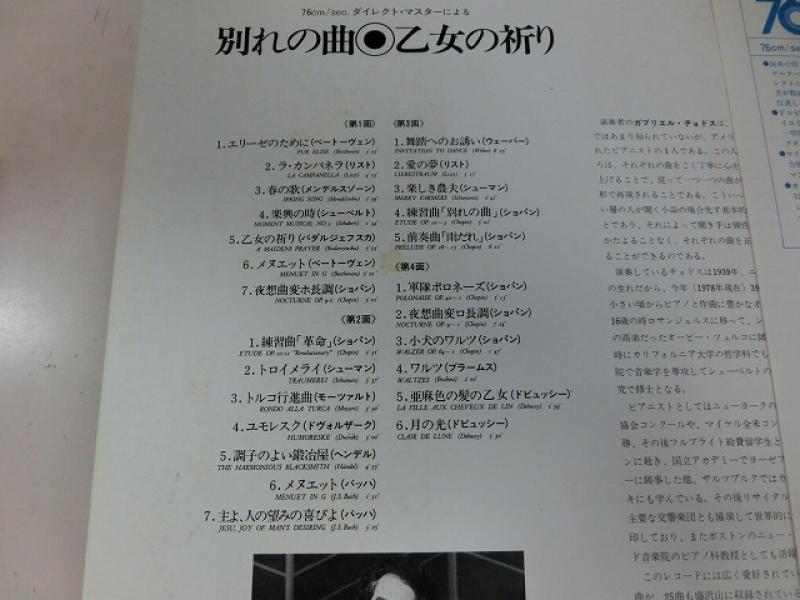 76cm/sec. ダイレクト・マスターによる
別れの曲◉乙女の祈り
〈第1面〉
1.エリーゼのために(ベートーヴェン)
FUR ELISE (Beethoven)
2.ラ・カンパネラ(リスト)
LA CAMPANELLA (Liszt)
3.春の歌(メンデルスゾーン)
SPRING SONG (Mendelssohn)
4.楽興の時(シューベルト)
MOMENT MUSICAL NO.3 (Schubert)
5.乙女の祈り(バダルジェフスカ)
A MAIDENS PRAYER (Badarzevska)
6.メヌエット(ベートーヴェン)
MENUET IN G (Beethoven)
7.夜想曲変ホ長調(ショパン)
NOCTURNE OP.9-2 (Chopin)
〈第2面〉
1.練習曲「革命」(ショパン)
ETUDE OP.10-12 "Revolutionary" (Chopin)
2.トロイメライ(シューマン)
TRAUMEREI (Schumann)
3.トルコ行進曲(モーツァルト)
RONDO ALLA TURCA (Mozart)
4.ユモレスク(ドヴォルザーク)
HUMORESKE (Dvořák)
5.調子のよい鍛冶屋(ヘンデル)
THE HARMONIOUS BLACKSMITH (Händel)
6.メヌエット(バッハ)
MENUET IN G (J.S.Bach)
7.主よ、人の望みの喜びよ(バッハ)
JESU, JOY OF MAN'S DESIRING (J.S.Bach)
〈第3面〉
1.舞踏へのお誘い(ウェーバー)
INVITATION TO DANCE (Weber)
2.愛の夢(リスト)
LIEBESTRAUM (Liszt)
3.楽しき農夫(シューマン)
MERRY FARMERS (Schumann)
4.練習曲「別れの曲」(ショパン)
ETUDE OP.10-3 (Chopin)
5.前奏曲「雨だれ」(ショパン)
PRELUDE OP.28-15 (Chopin)
〈第4面〉
1.軍隊ポロネーズ(ショパン)
POLONAISE OP.40-1 (Chopin)
2.夜想曲変ロ長調(ショパン)
NOCTURNE OP.9-1 (Chopin)
3.小犬のワルツ(ショパン)
WALZER OP.64-1 (Chopin)
4.ワルツ(ブラームス)
WALTZES (Brahms)
5.亜麻色の髪の乙女(ドビュッシー)
LA FILLE AUX CHEVEUX DE LIN (Debussy)
6.月の光(ドビュッシー)
CLAIR DE LUNE (Debussy)
演奏者のガブリエル・チョドスは、
ではあまり知られていないが、アメリ
れたピアニストの1人である。この人
ろは、それぞれの曲をごく丁寧に心を
上げることで、従って一つ一つの曲が
形で再現されることである。こういー
い層の人が聞く小品の場合先ず基本的
とであり、それによって聞き手は個性
かたよることなく、それぞれの曲を正
ることができるのである。
演奏しているチョドスは1939年、ニ
の生れだから、今年(1978年現在)39
小さい頃からピアノと作曲に豊かなオ
16歳の時ロサンジェルスに移って、シ
の高弟だったオービー・ツェルコに師
時にカリフォルニア大学の哲学科でも
院で音楽学を専攻してシューベルトの
究で修士となる。
ピアニストとしてはニューヨークの
協会コンクールや、マイケル全米コン
得、その後フルブライト給費留学生と
ンに赴き、国立アカデミーでヨーゼフ
ーに師事した他、ザルツブルクではカ
キにも学んでいる。その後リサイタル
主要な交響楽団とも協演して世界的に
印しており、またボストンのニュー・
ド音楽院のピアノ科教授としても活躍
このレコードには広く愛好されてい
曲が、25曲も盛沢山に収録されている
76
76cm/sec